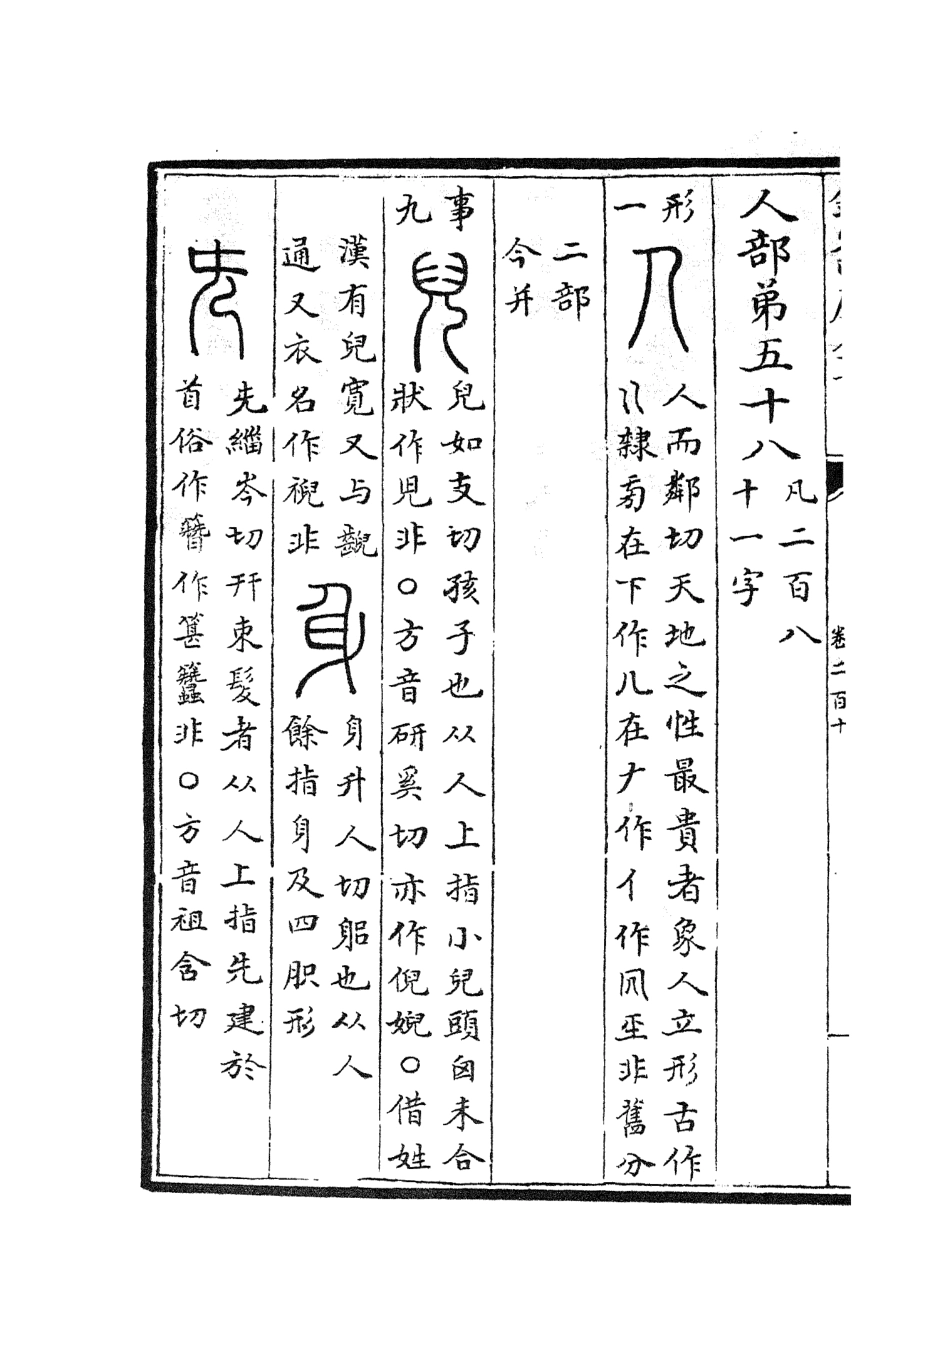 人部第五十八 凡二百八
十一字
形一 人 人而鄰切天地之性最貴者象人立形古作
隸旁在下作儿在𠂇作亻作㐱非舊分
二部
今并
事九 兒 兒如支切孩子也从人上指小兒頭囟未合
狀作児非○方音研奚切亦作倪婗○借姓
漢有兒寬又与齯
通又衣名作䘽非
身 身升人切躳也从人
餘指身及四胑形
兂 先緇岑切幵束髮者从人上指先建於
首俗作簪作篸蠶非○方音祖含切
卷二百十